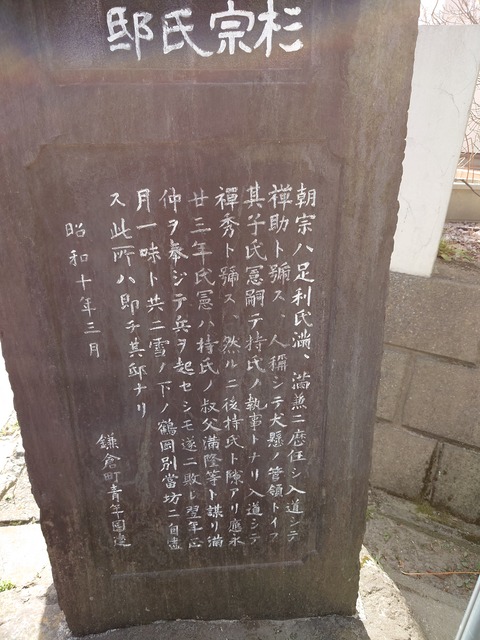 杉宗氏邸
朝宗ハ足利氏満、満兼ニ歴任シ入道シテ
禅助ト號ス、人稱シテ犬懸ノ管領トイフ
其子氏憲嗣テ持氏ノ執事トナリ入道シテ
禅秀ト號ス、然ルニ後持氏ト隙アリ應永
廿三年氏憲ハ持氏ノ叔父満隆等ト謀リ満
仲ヲ奉ジテ兵ヲ起セシモ遂ニ敗レ翌年正
月一味ト共ニ雪ノ下ノ鶴岡別當坊ニ自盡
ス此所ハ即チ其邸ナリ
昭和十年三月
鎌倉町青年團建